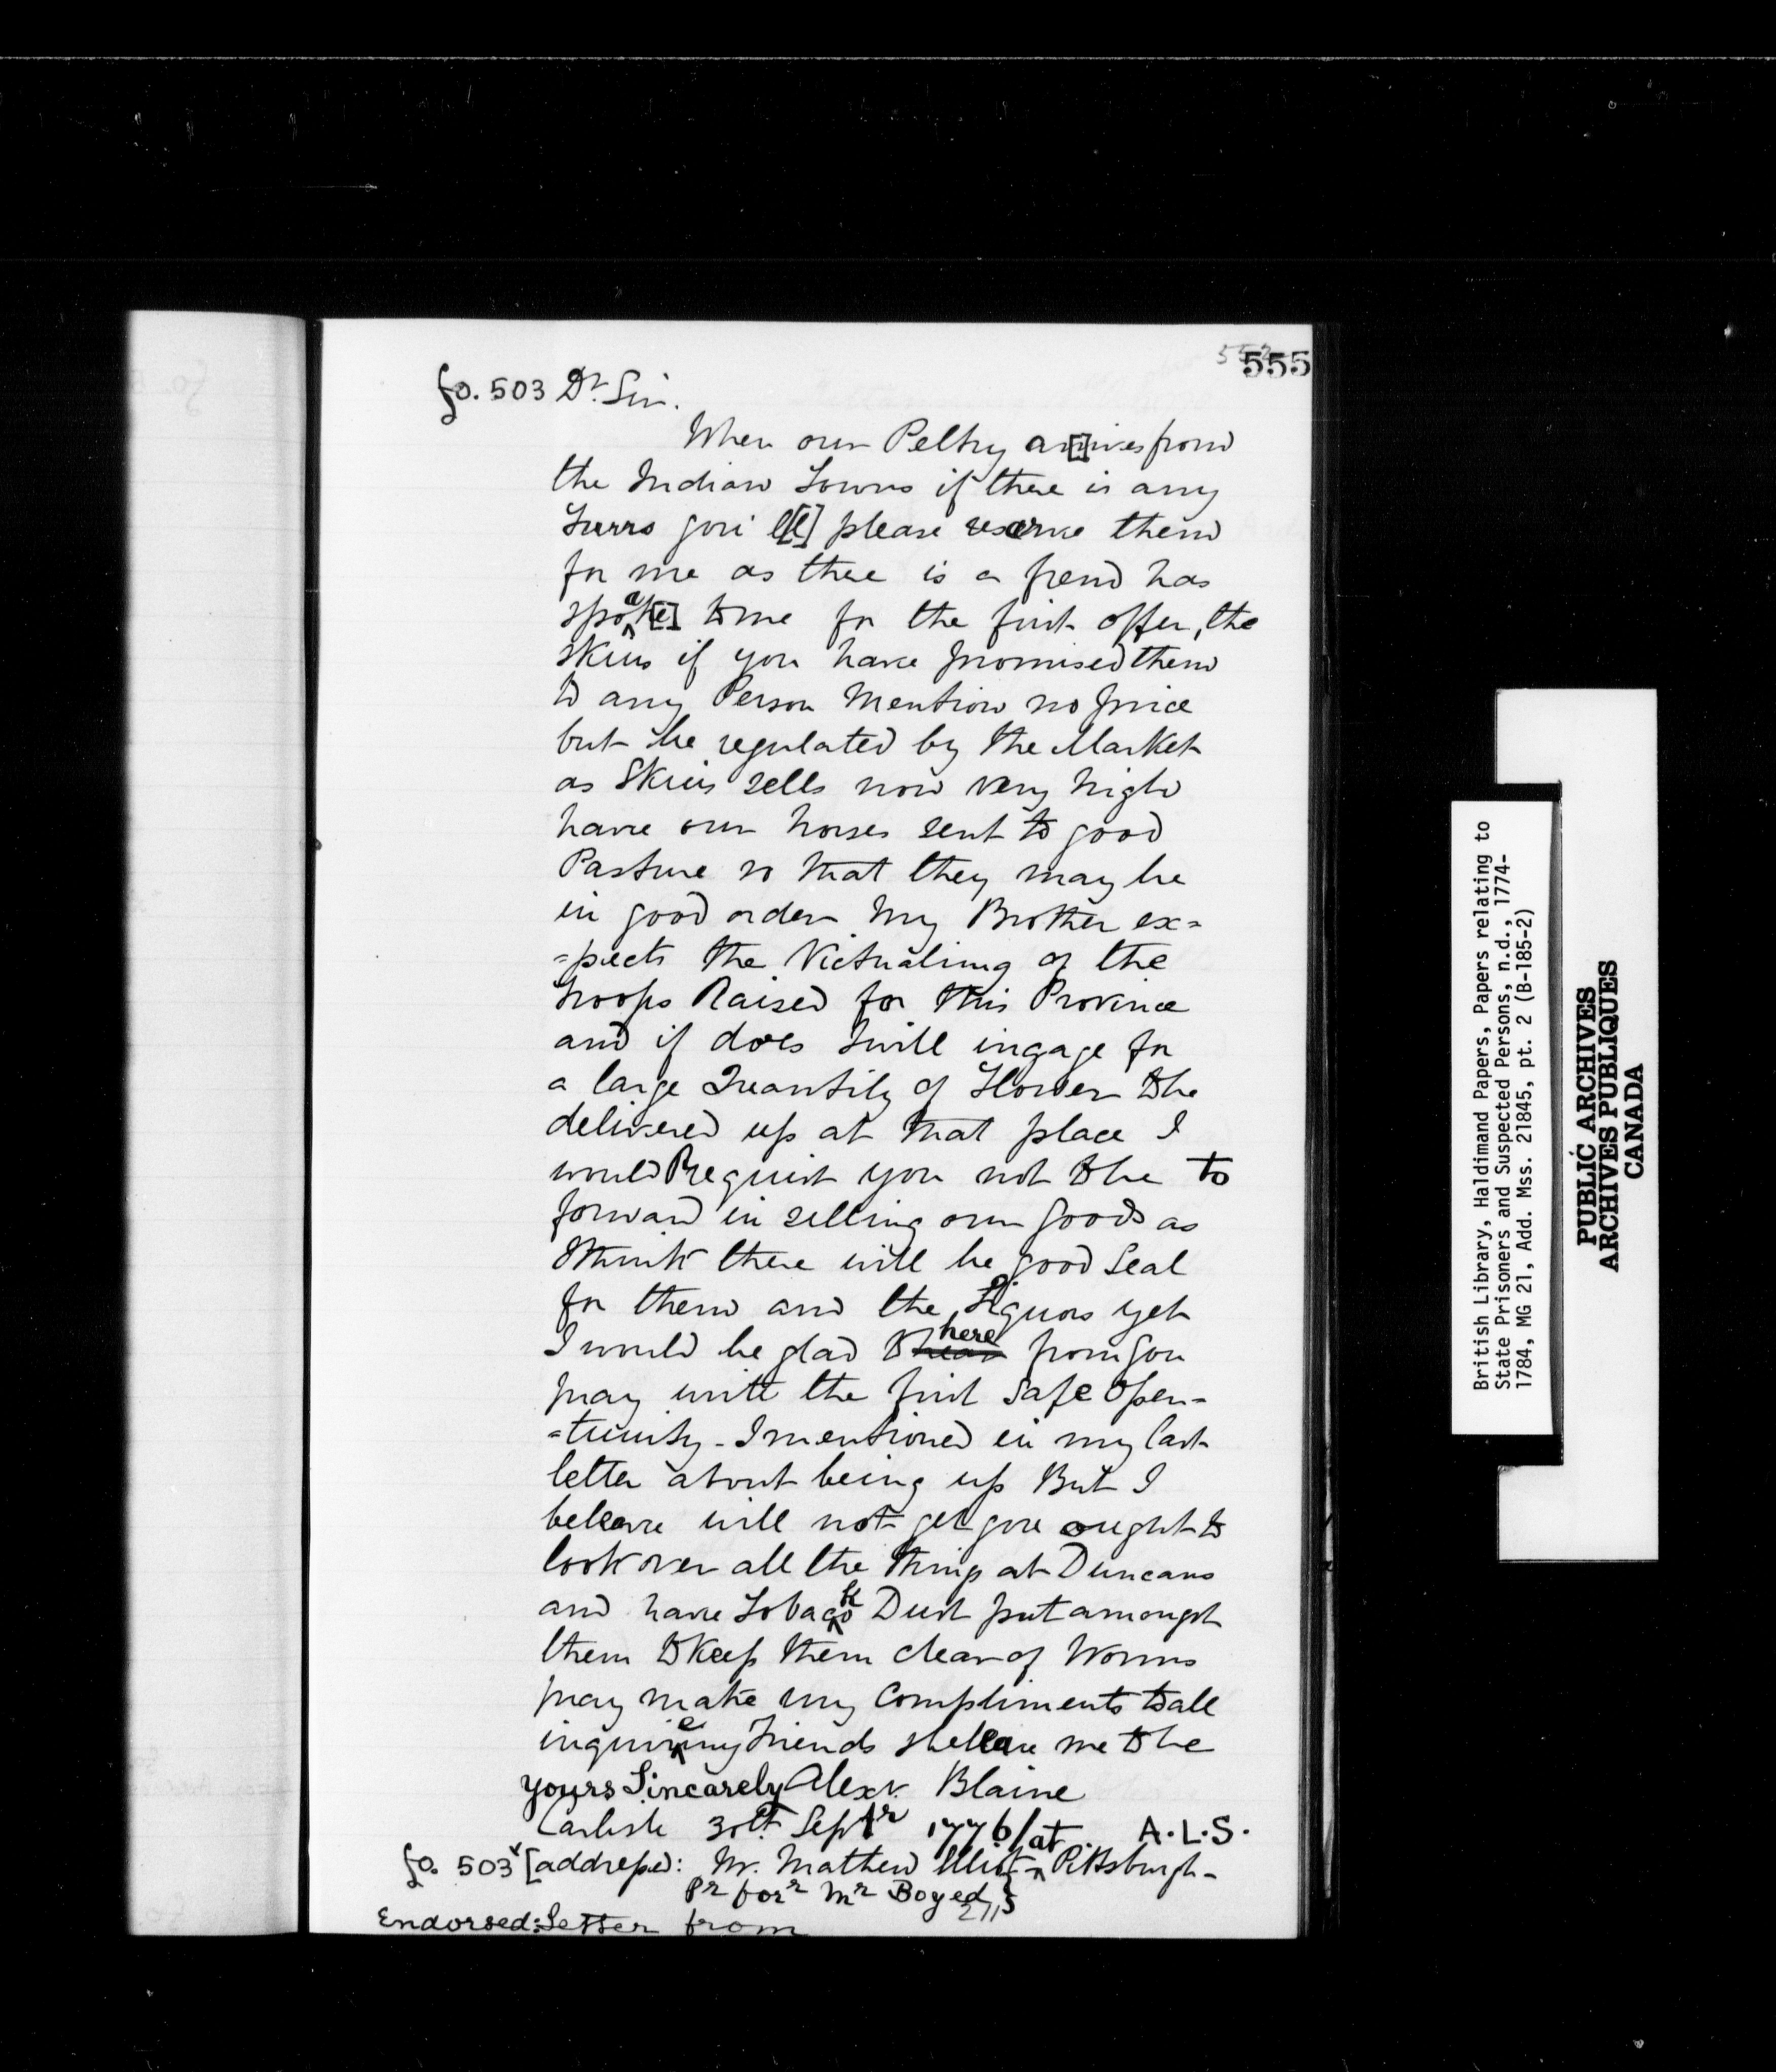 555
fo. 503 Dr. Sir.
When our Peltry ar[]ives from
the Indian Towns if there is any
Furrs please reserve them
for me as there is a frend has
spoake[] to me for the first offer, the
Skins if you have promised them
to any Person Mention no price
but be regulated by the Market
as Skins sells now very high
have our horses sent to good
Pasture so that they may be
in good order My Brother ex=
=pects the Victualing of the
troops Raised for this Province
and if does I will ingage for
a large Quantity of Flower to be
delivered up at that place I
would Requist you not to be to
forward in selling our goods as
I think there will be good Seal
for them and the Liquors yet
I would be glad to hear here from you
may write the first safe open=
=tunity - I mentioned in my last
letter about being up But I
beleave will not get you ought to
look over all the things at Duncans
and have Tobacko Dust put amongst
them to Keep them clear of Worms
may make my Compliments to all
inquireing Friends & beleave me to be
yours Sincarely Alexr. Blaine
Carlisle 30th Septr 1776/at A.L.S.
fo. 503v [addressed: Mr. Mathew Elliot at Pittsburgh-
Pr for Mr Boyed
Endorsed: Letter from
British Library, Haldimand Papers, Papers relating to
State Prisoners and Suspected Persons, n.d., 1774-
1784, MG 21, Add. Mss. 21845, pt. 2 (B-185-2)
PUBLIC ARCHIVES
ARCHIVES PUBLIQUES
CANADA